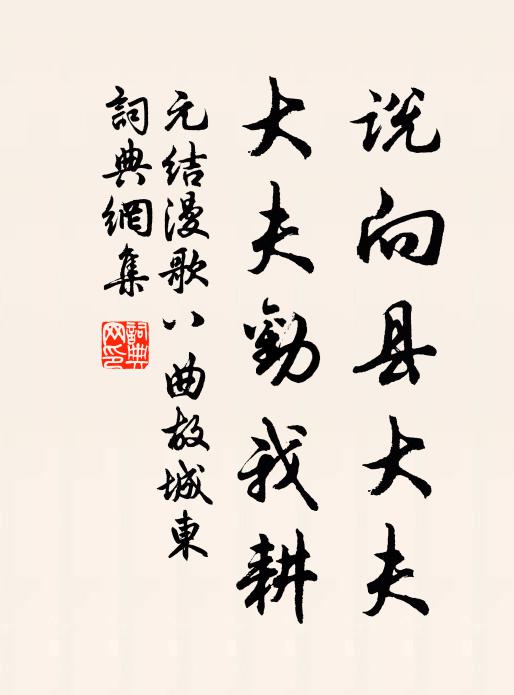 说向县大夫
大夫勸我耕
元结漫歌八曲故城東
詞典網集
詞典網印